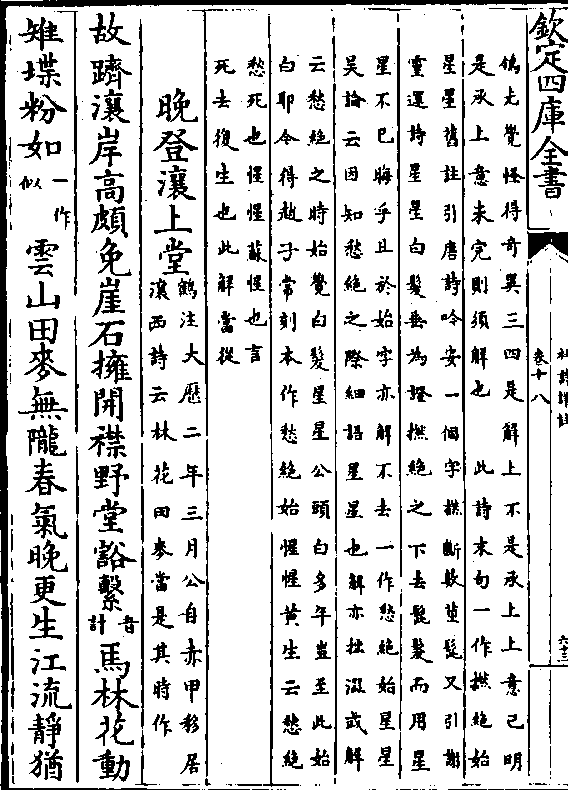 欽定四庫全書
杜詩詳註
卷十八
六十三
鴿尤覺怪得奇與三四是解上不是承上上意已明
是承上意未完則須解也　此詩末句一作撚絕始
星星舊註引唐詩吟安一個字撚斷數莖髭又引謝
靈運詩星星白髮垂為證撚絕之下去髭髮而用星
星不已晦乎且於始字亦解不去一作愁絕始星星
吳論云因知愁絕之際細語星星也解亦拙澀或解
云愁絕之時始覺白髮星星公頭白多年豈至此始
白耶今得趙子常刻本作愁絕始惺惺黄生云愁絕
愁死也惺惺蘇惺也言
死去復生也此解當從
晚登瀼上堂
鶴注大歷二年三月公自赤甲移居
瀼西詩云林花田麥當是其時作
故躋瀼岸高頗免崖石擁開襟野堂豁繫音計馬林花動
雉堞粉如一作似雲山田麥無隴春氣晚更生江流靜猶